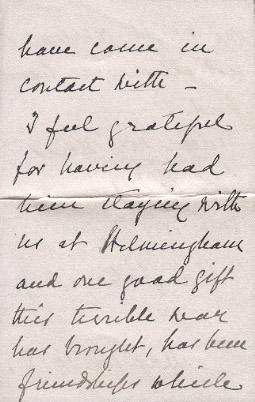 have come in
contact with –
I feel grateful
for having had
him staying with
us at Helmingham
and one good gift
this terrible war
has brought, has been
friendships which